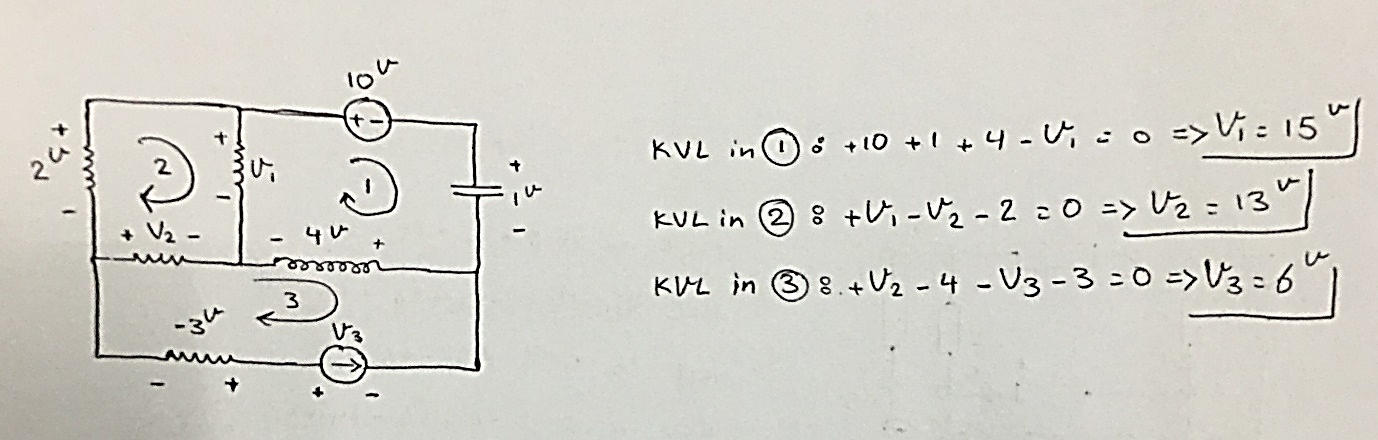 10 v
+ -
+
2 v
-
2
+
V₁
-
1
+
1 v
-
+ V₂ -
- 4 v +
3
-3 v
V₃
- +
+ -
KVL in ① : +10 + 1 + 4 - V₁ = 0 => V₁ = 15 v
KVL in ② : +V₁ - V₂ - 2 = 0 => V₂ = 13 v
KVL in ③ : + V₂ - 4 - V₃ - 3 = 0 => V₃ = 6 v